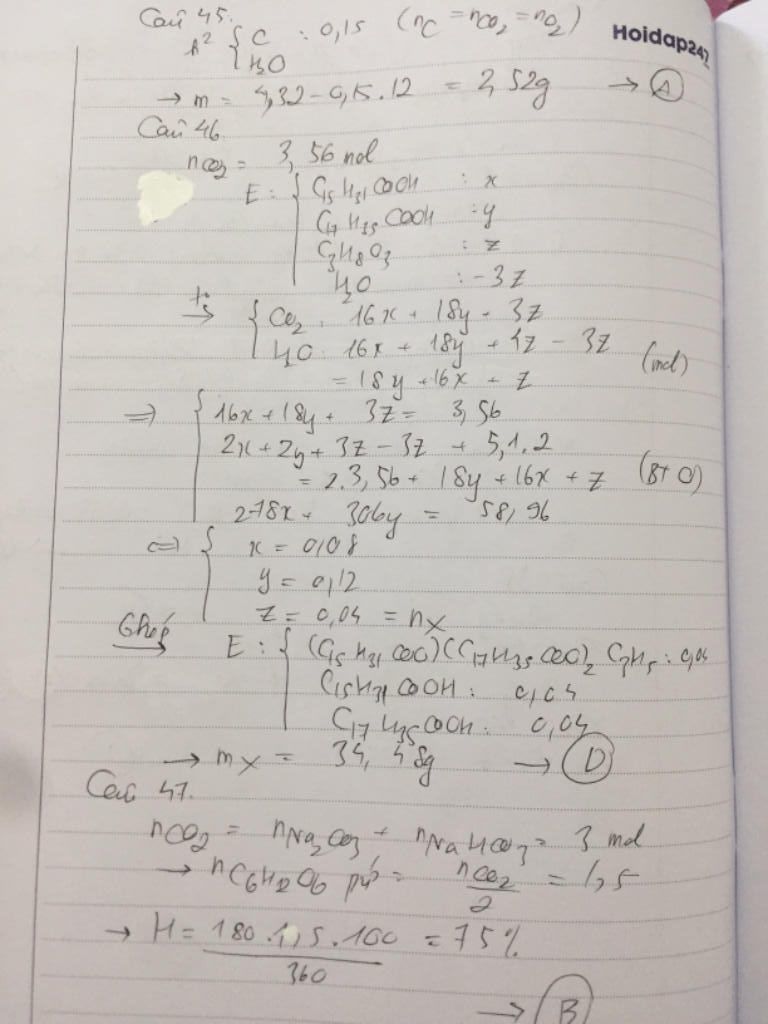 Câu 45.
Hoidap247
A² { C : 0,15 (nC = nCO2 = nO2)
H2O
→ m = 4,32 - 0,15.12 = 2,52g → A
Câu 46.
nCO2 = 3,56 mol
E : { C15H31COOH : x
C17H35COOH : y
C3H8O3 : z
H2O : -3z
→ { CO2 : 16x + 18y + 3z
H2O : 16x + 18y + 4z - 3z (mol)
= 18y + 16x + z
⇒ { 16x + 18y + 3z = 3,56
2x + 2y + 3z - 3z + 5,1.2
= 2.3,56 + 18y + 16x + z (BT O)
278x + 306y = 58,96
⇔ { x = 0,08
y = 0,12
z = 0,04 = nX
Ghép
→ E : { (C15H31COO)(C17H35COO)2C3H5 : 0,04
C15H31COOH : 0,04
C17H35COOH : 0,04
→ mX = 34,48g → D
Câu 47.
nCO2 = nNa2CO3 + nNaHCO3 = 3 mol
→ nC6H12O6 pứ = nCO2/2 = 1,5
→ H = 180.1,5.100/360 = 75%
→ B